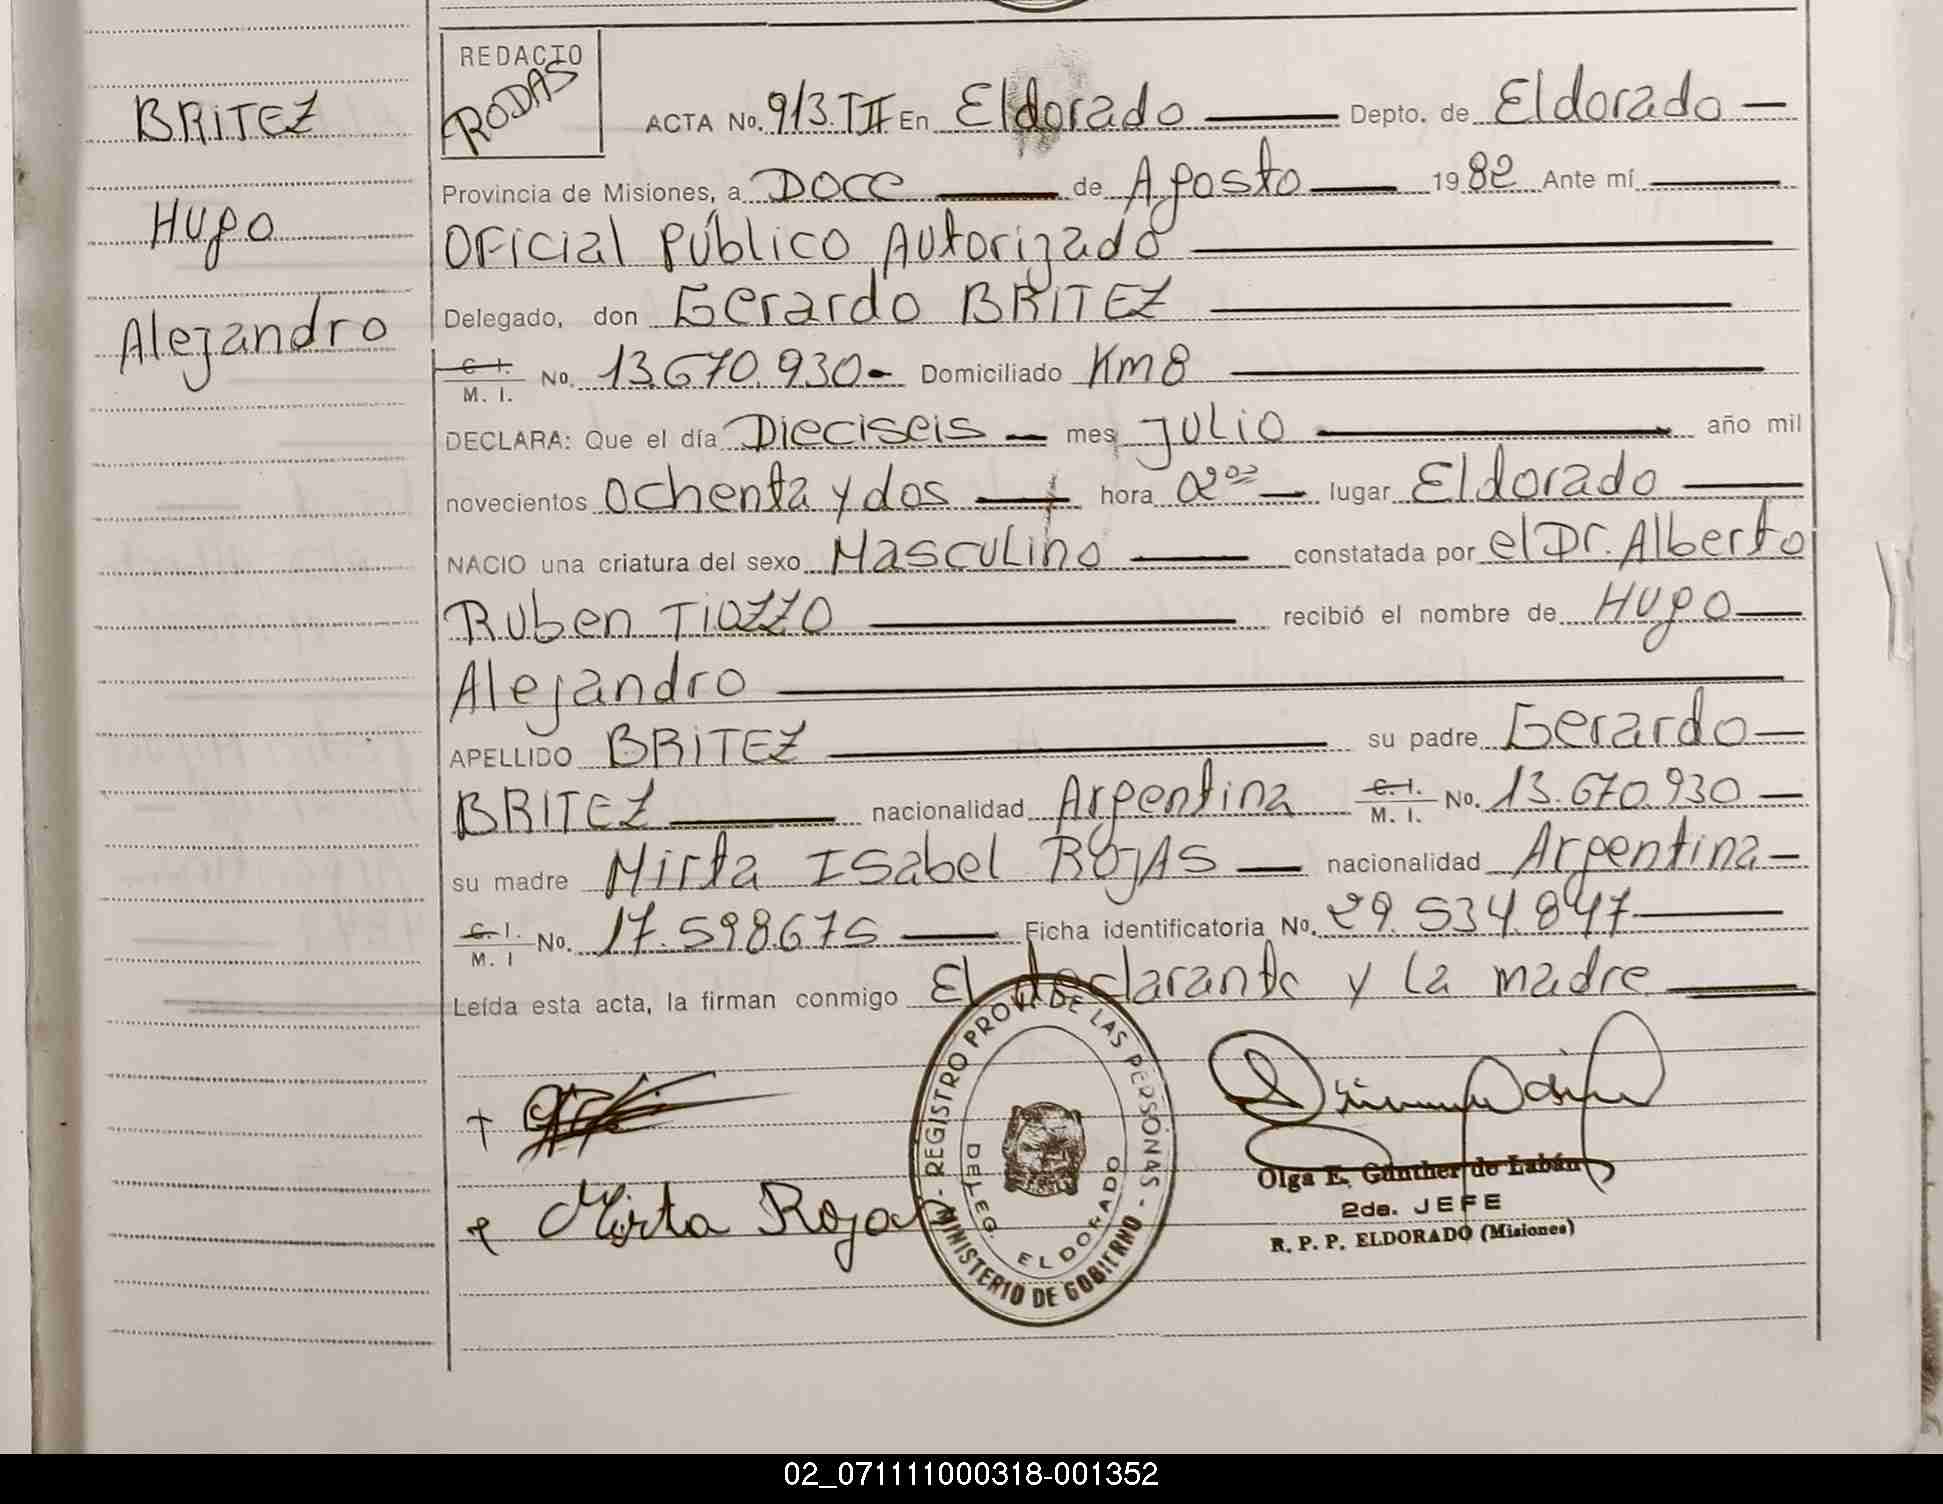 BRITEZ
Hugo
Alejandro
REDACTO
RODAS
ACTA No. 913.TII En Eldorado Depto. de Eldorado
Provincia de Misiones, a DOCE de Agosto 1982 Ante mí
Oficial Público Autorizado
Delegado, don Gerardo BRITEZ
C. I. M. I. No. 13.670.930- Domiciliado Km 8
DECLARA: Que el día Dieciseis mes Julio año mil
novecientos Ochenta y dos hora 02⁰⁰ lugar Eldorado
NACIO una criatura del sexo Masculino constatada por el Dr. Alberto
Ruben TIOZZO recibió el nombre de Hugo
Alejandro
APELLIDO BRITEZ su padre Gerardo
BRITEZ nacionalidad Argentina C. I. M. I. No. 13.670.930
su madre Mirta Isabel ROJAS nacionalidad Argentina
C. I. M. I No. 17.598.675 Ficha identificatoria No. 29.534.847
Leída esta acta, la firman conmigo El declarante y la madre
Mirta Rojas
REGISTRO PROV. DE LAS PERSONAS
MINISTERIO DE GOBIERNO
DELEG. ELDORADO
Olga E. Günther de Labán
2da. JEFE
R. P. P. ELDORADO (Misiones)
02_071111000318-001352